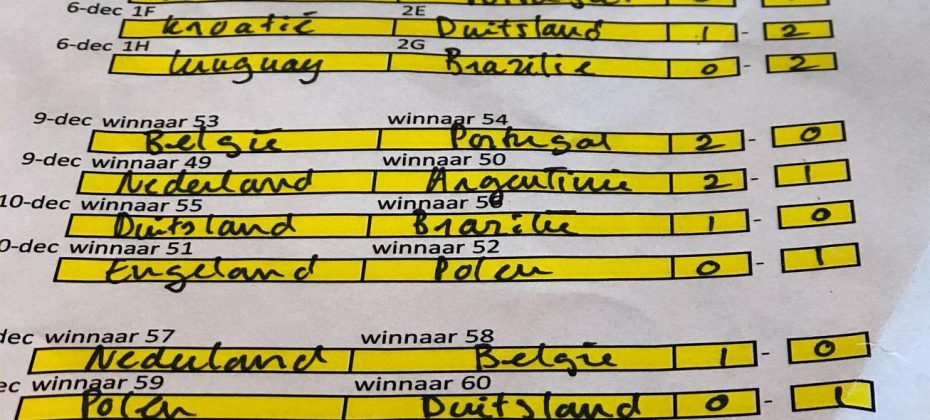 6-dec 1F 2E
Kroatië Duitsland 1 - 2
6-dec 1H 2G
Uruguay Brazilie 0 - 2
9-dec winnaar 53 winnaar 54
België Portugal 2 - 0
9-dec winnaar 49 winnaar 50
Nederland Argentinie 2 - 1
10-dec winnaar 55 winnaar 56
Duitsland Brazilië 1 - 0
0-dec winnaar 51 winnaar 52
Engeland Polen 0 - 1
dec winnaar 57 winnaar 58
Nederland België 1 - 0
ec winnaar 59 winnaar 60
Polen Duitsland 0 - 1